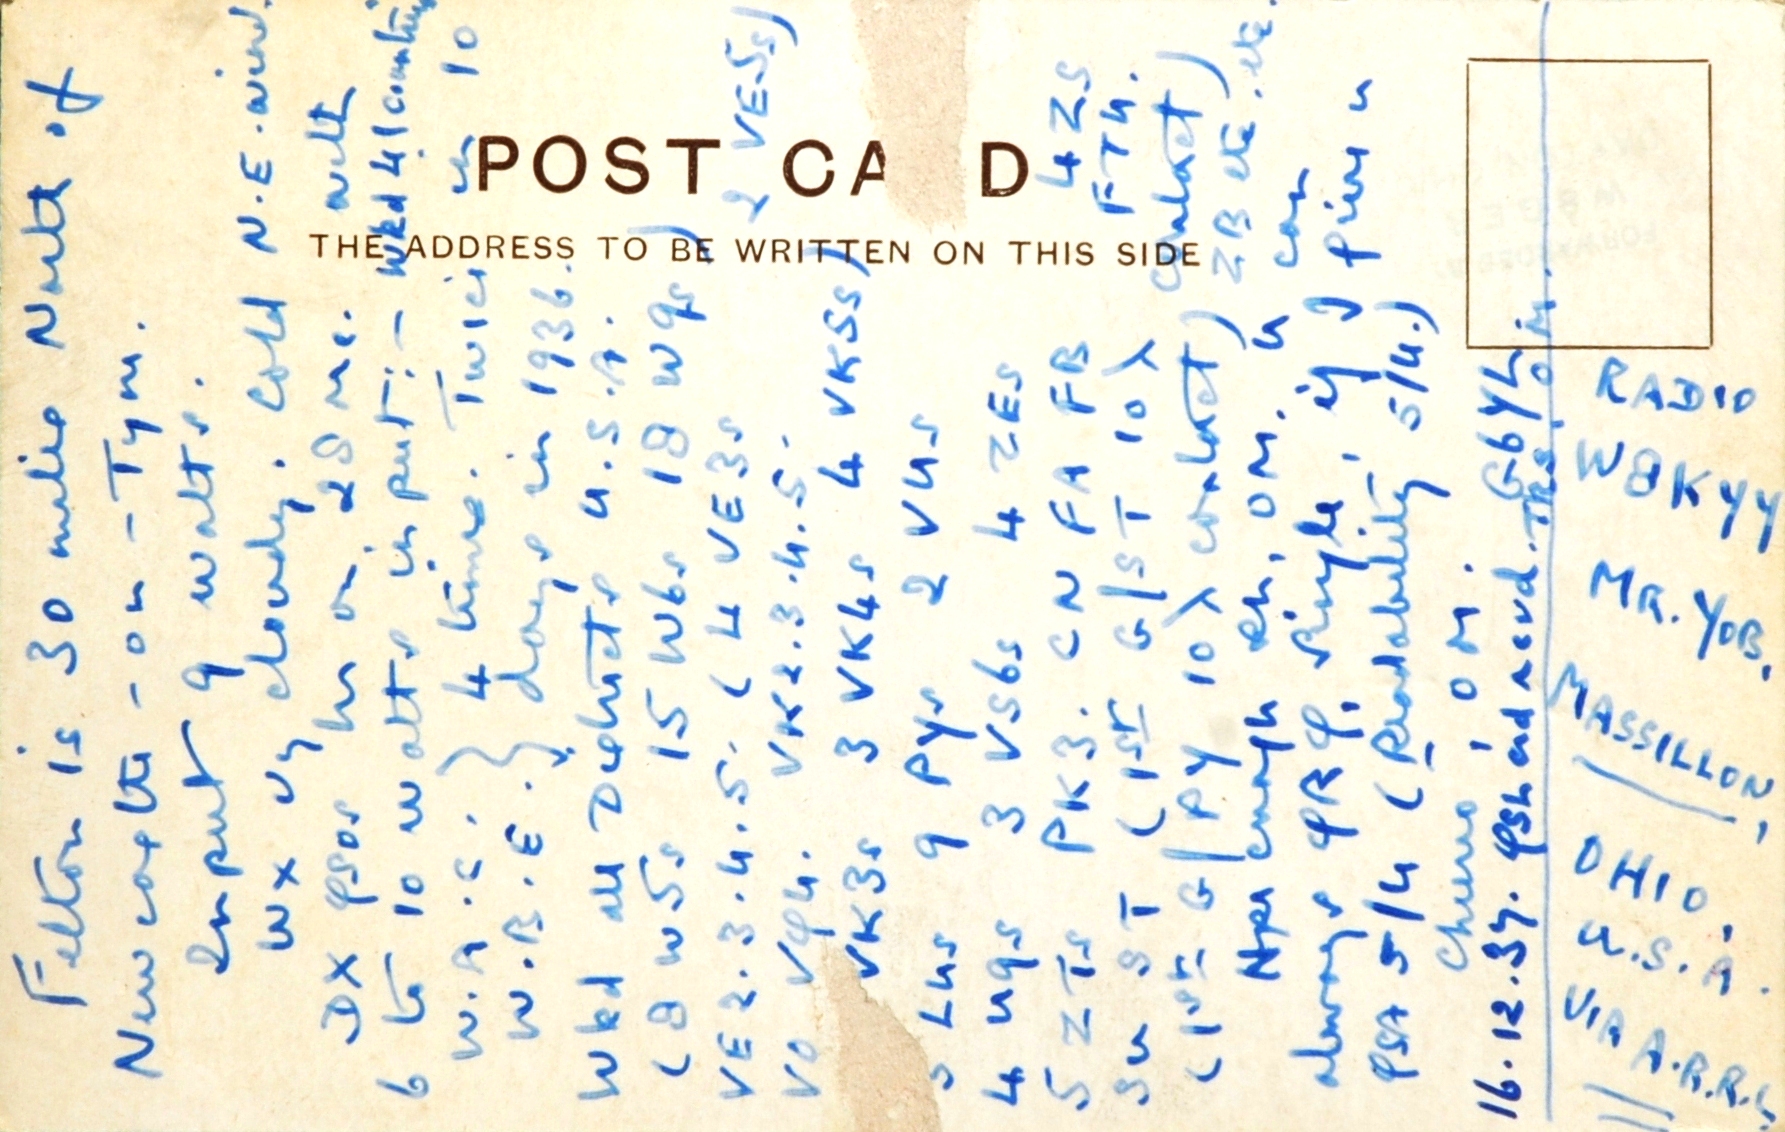 POST CA D
THE ADDRESS TO BE WRITTEN ON THIS SIDE
Felton is 30 miles North of
Newcastle-on-Tyne.
Input 9 watts.
Wx vy cloudy. Cold N.E. wind.
DX QSOs hr on 28 mc. with
6 to 10 watts input:- Wkd 41 countries
W.A.C. } 4 times. Twice in 10
W.B.E. } days in 1936.
Wkd all Districts U.S.A.
(8 W5s 15 W6s 18 W9s)
VE2.3.4.5. (4 VE3s 2 VE5s)
VO VQ4. VK2.3.4.5.
VK3s 3 VK4s 4 VK5s)
5 LUs 9 PYs 2 VUs
4 U9s 3 VS6s 4 ZEs
5 ZTs PK3. CN FA FB 4 ZS
SU ST (1st G/ST 10 λ FT4.
(1st G/PY 10 λ contact) contact)
Hpe enough eh, OM. ZB etc. etc.
always QRP, single, if U can
PSE 5/U (Readability 5/U.) give U
Cheerio, OM.
16.12.37. QSL card recvd. Tks. OM.
G6YL
RADIO
W8KYY
MR. YOB.
MASSILLON,
OHIO,
U.S.A.
VIA A.R.R.L